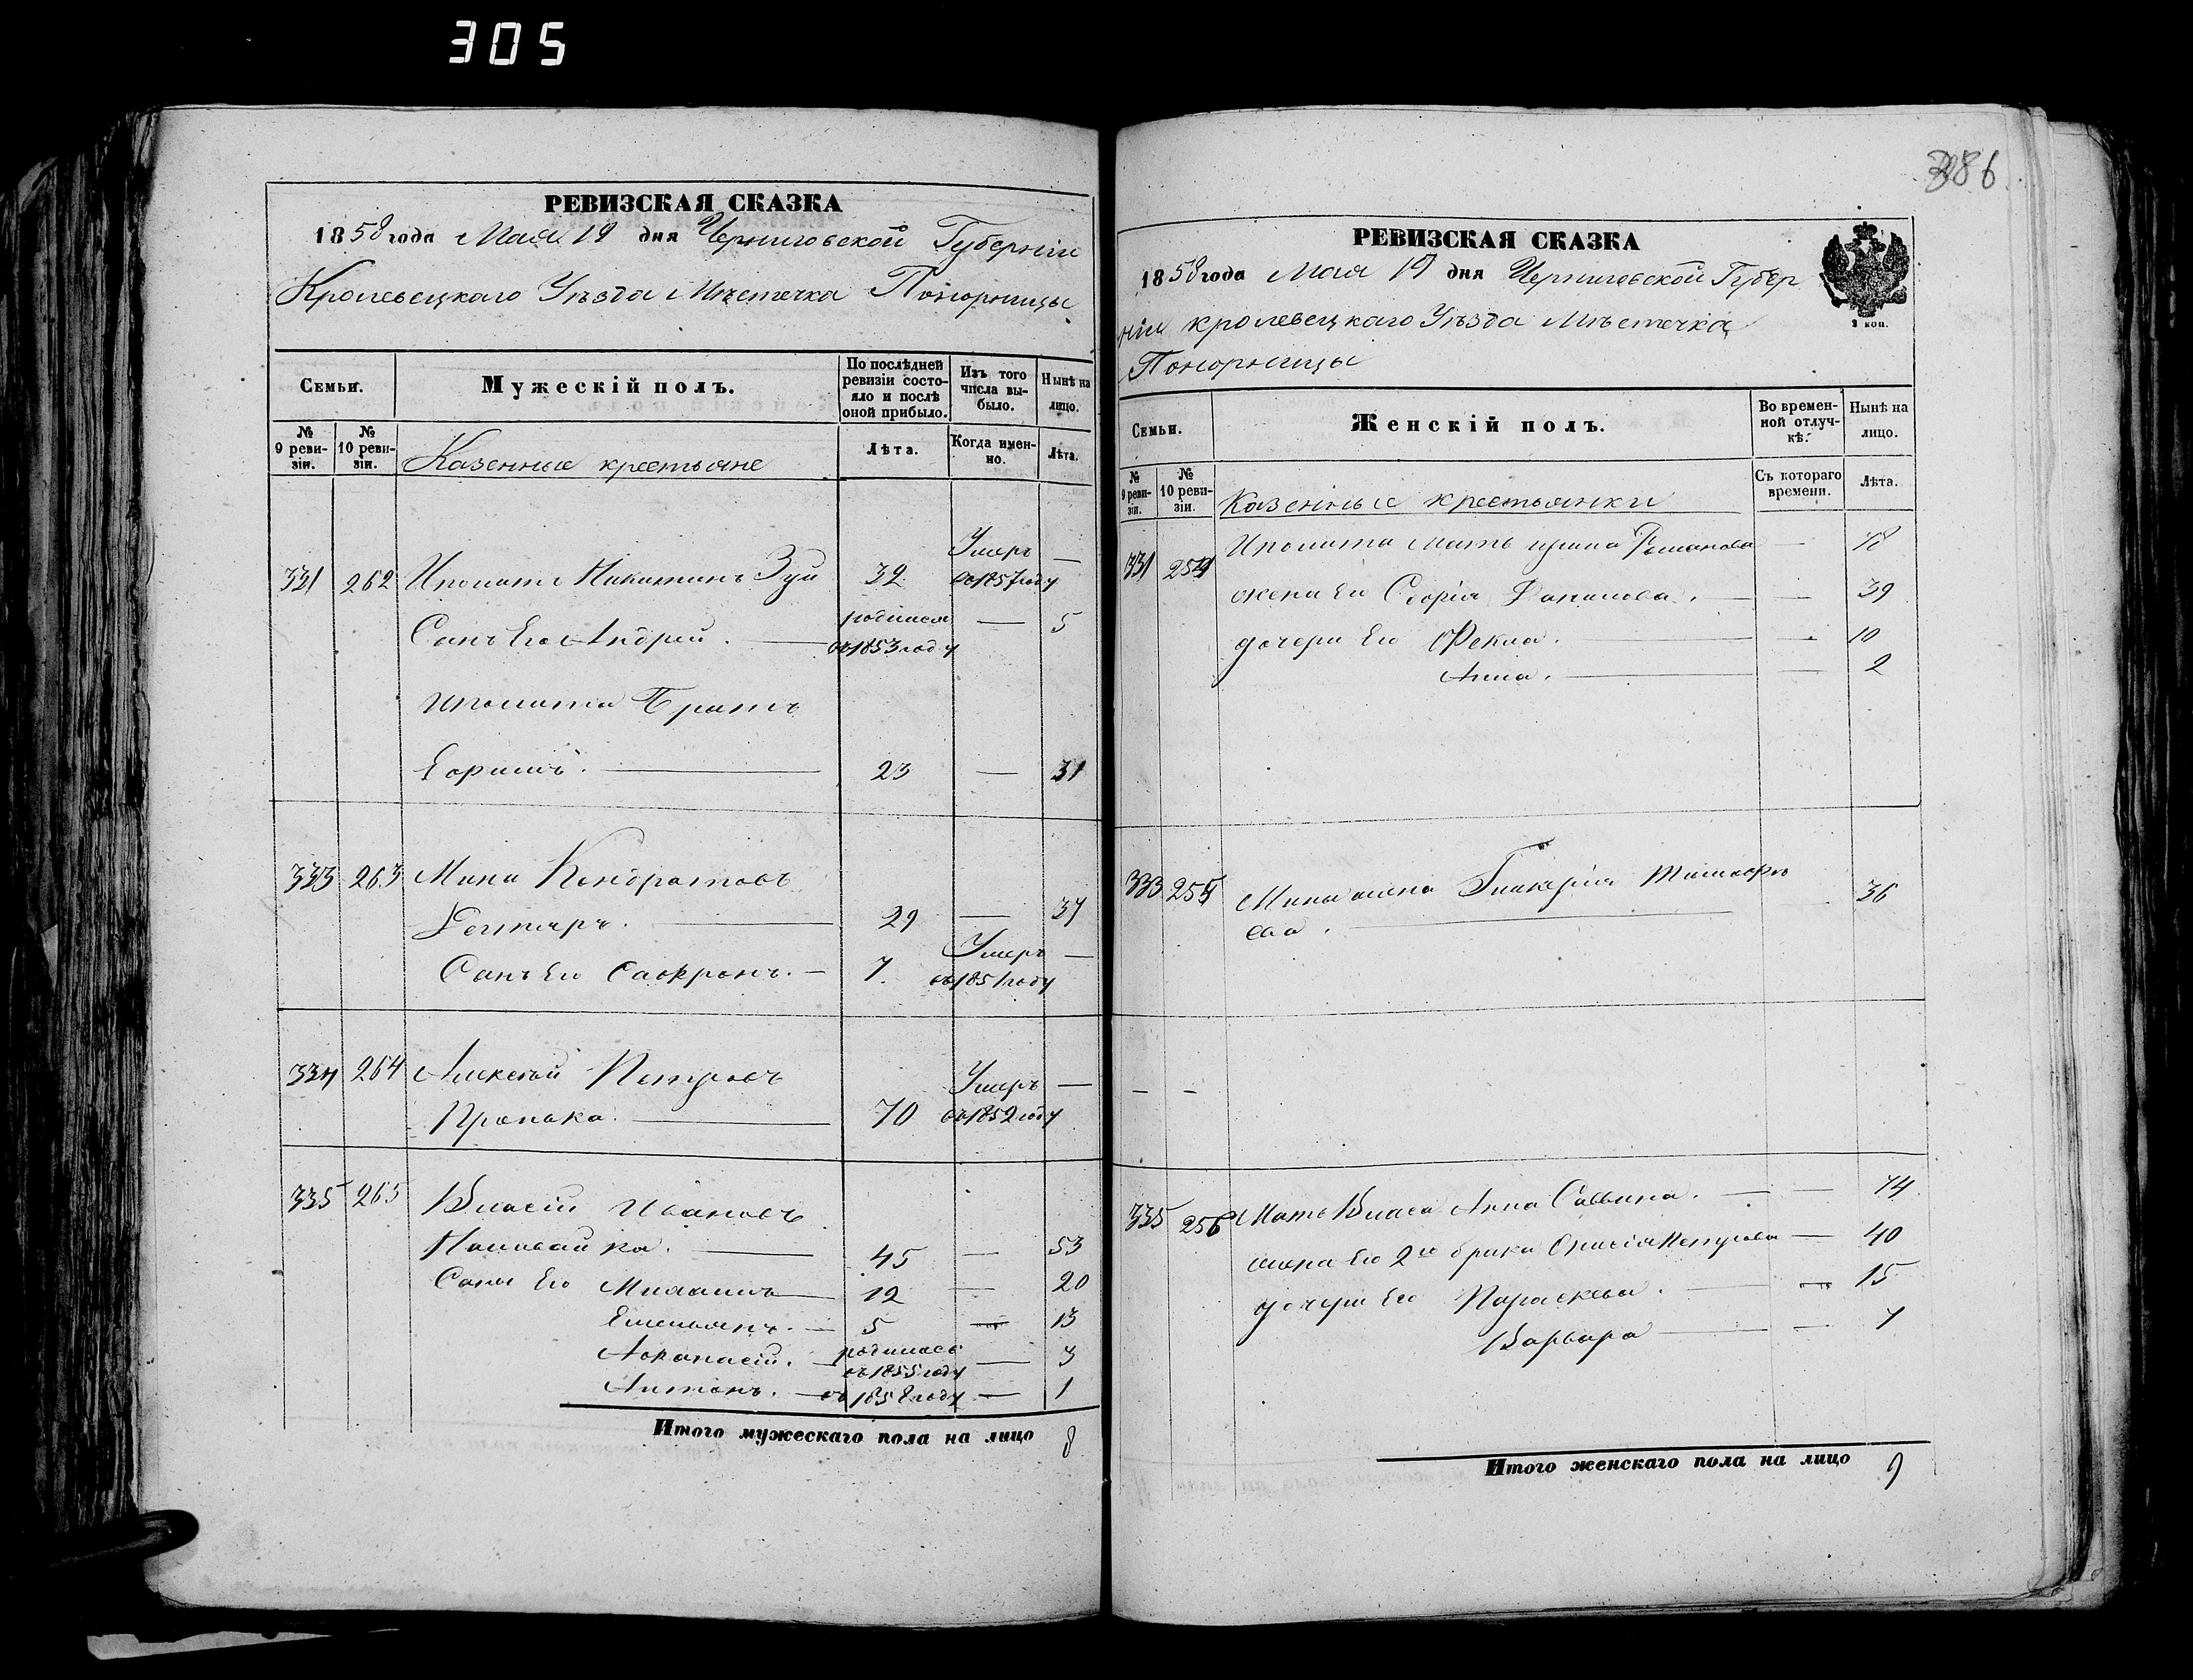 305
386
РЕВИЗСКАЯ СКАЗКА
1858 года Мая 19 дня Черниговской Губерніи
Кролевецкаго Уѣзда Мѣстечка Понорницы
Семьи. Мужескій полъ. По послѣдней ревизіи состояло и послѣ оной прибыло. Изъ того числа выбыло. Нынѣ на лицо.
№ 9 ревизіи. № 10 ревизіи. Казенные крестьяне Лѣта. Когда именно. Лѣта.
331 262 Иполитъ Никитинъ Зуй 32 Умеръ въ 1857 году —
Сынъ Его Андрей. — родился въ 1853 году — 5
Иполита Братъ
Ефимъ. — 23 — 31
333 263 Мина Кондратовъ
Дегтяръ. — 29 — 37
Сынъ Его Сафронъ. — 7. Умеръ въ 1851 году —
334 264 Алексѣй Петровъ
Пронька. — 70 Умеръ въ 1852 году —
335 265 Власій Ивановъ
Наливайка. — 45 — 53
Сыны Его Михаилъ — 12 — 20
Емельянъ. — 5 — 13
Афанасій. — родился въ 1855 году — 3
Антонъ. — въ 1858 году — 1
Итого мужескаго пола на лицо 8
РЕВИЗСКАЯ СКАЗКА
1858 года Мая 19 дня Черниговской Губер
ніи Кролевецкаго Уѣзда Мѣстечка
Понорницы
2 коп.
Семьи. Женскій полъ. Во временной отлучкѣ. Нынѣ на лицо.
№ 9 ревизіи. № 10 ревизіи. Казенные крестьянки Съ котораго времени. Лѣта.
331 254 Иполита Мать Романова —
жена Его Софія Данилова. — — 39
дочери Его Фекла. — — 10
Анна. — — 2
333 255 Мина жена Гликерія Тимофѣ
ева. — 36
— —
335 256 Мать Власа Анна Саввина. — — 74
жена Его 2го брака Петрова — 40
дочери Его Параскева. — — 15
Варвара — — 7
Итого женскаго пола на лицо 9